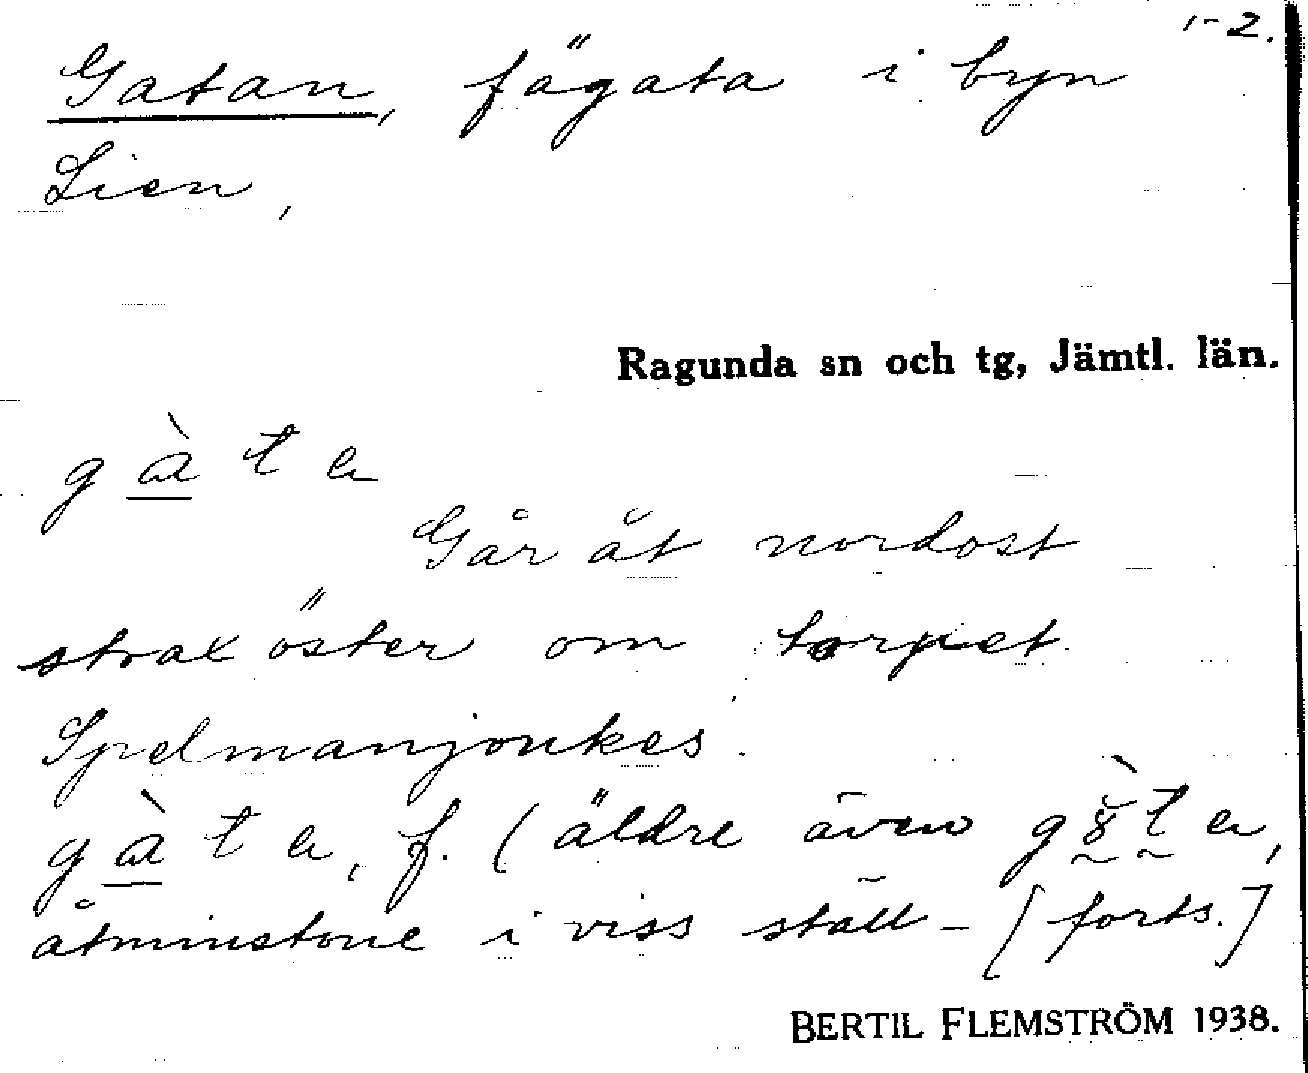 1-2.
Gatan, fägata i byn
Lien,
Ragunda sn och tg, Jämtl. län.
g à t a
Går åt nordost
strax öster om torpet
Spelmanjonkes.
g à t a, f. (äldre även
åtminstone i viss ställ- [forts.]
BERTIL FLEMSTRÖM 1938.